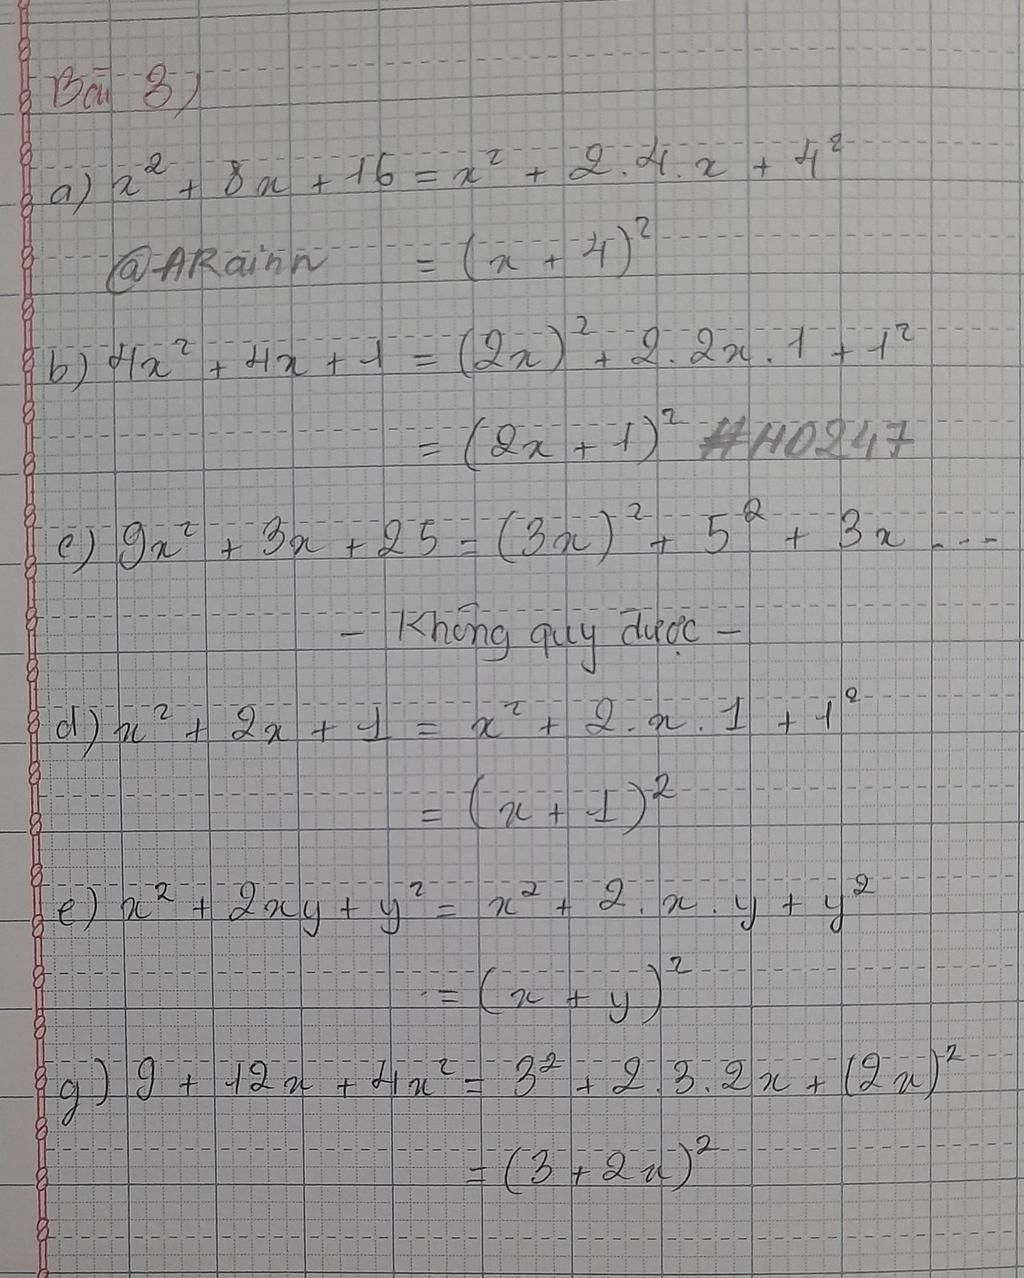 Bài 3)
a) x² + 8x + 16 = x² + 2.4.x + 4²
@ARainn = (x + 4)²
b) 4x² + 4x + 1 = (2x)² + 2.2x.1 + 1²
= (2x + 1)² #H0247
c) 9x² + 3x + 25 = (3x)² + 5² + 3x ...
- Không quy được -
d) x² + 2x + 1 = x² + 2.x.1 + 1²
= (x + 1)²
e) x² + 2xy + y² = x² + 2.x.y + y²
= (x + y)²
g) 9 + 12x + 4x² = 3² + 2.3.2x + (2x)²
= (3 + 2x)²